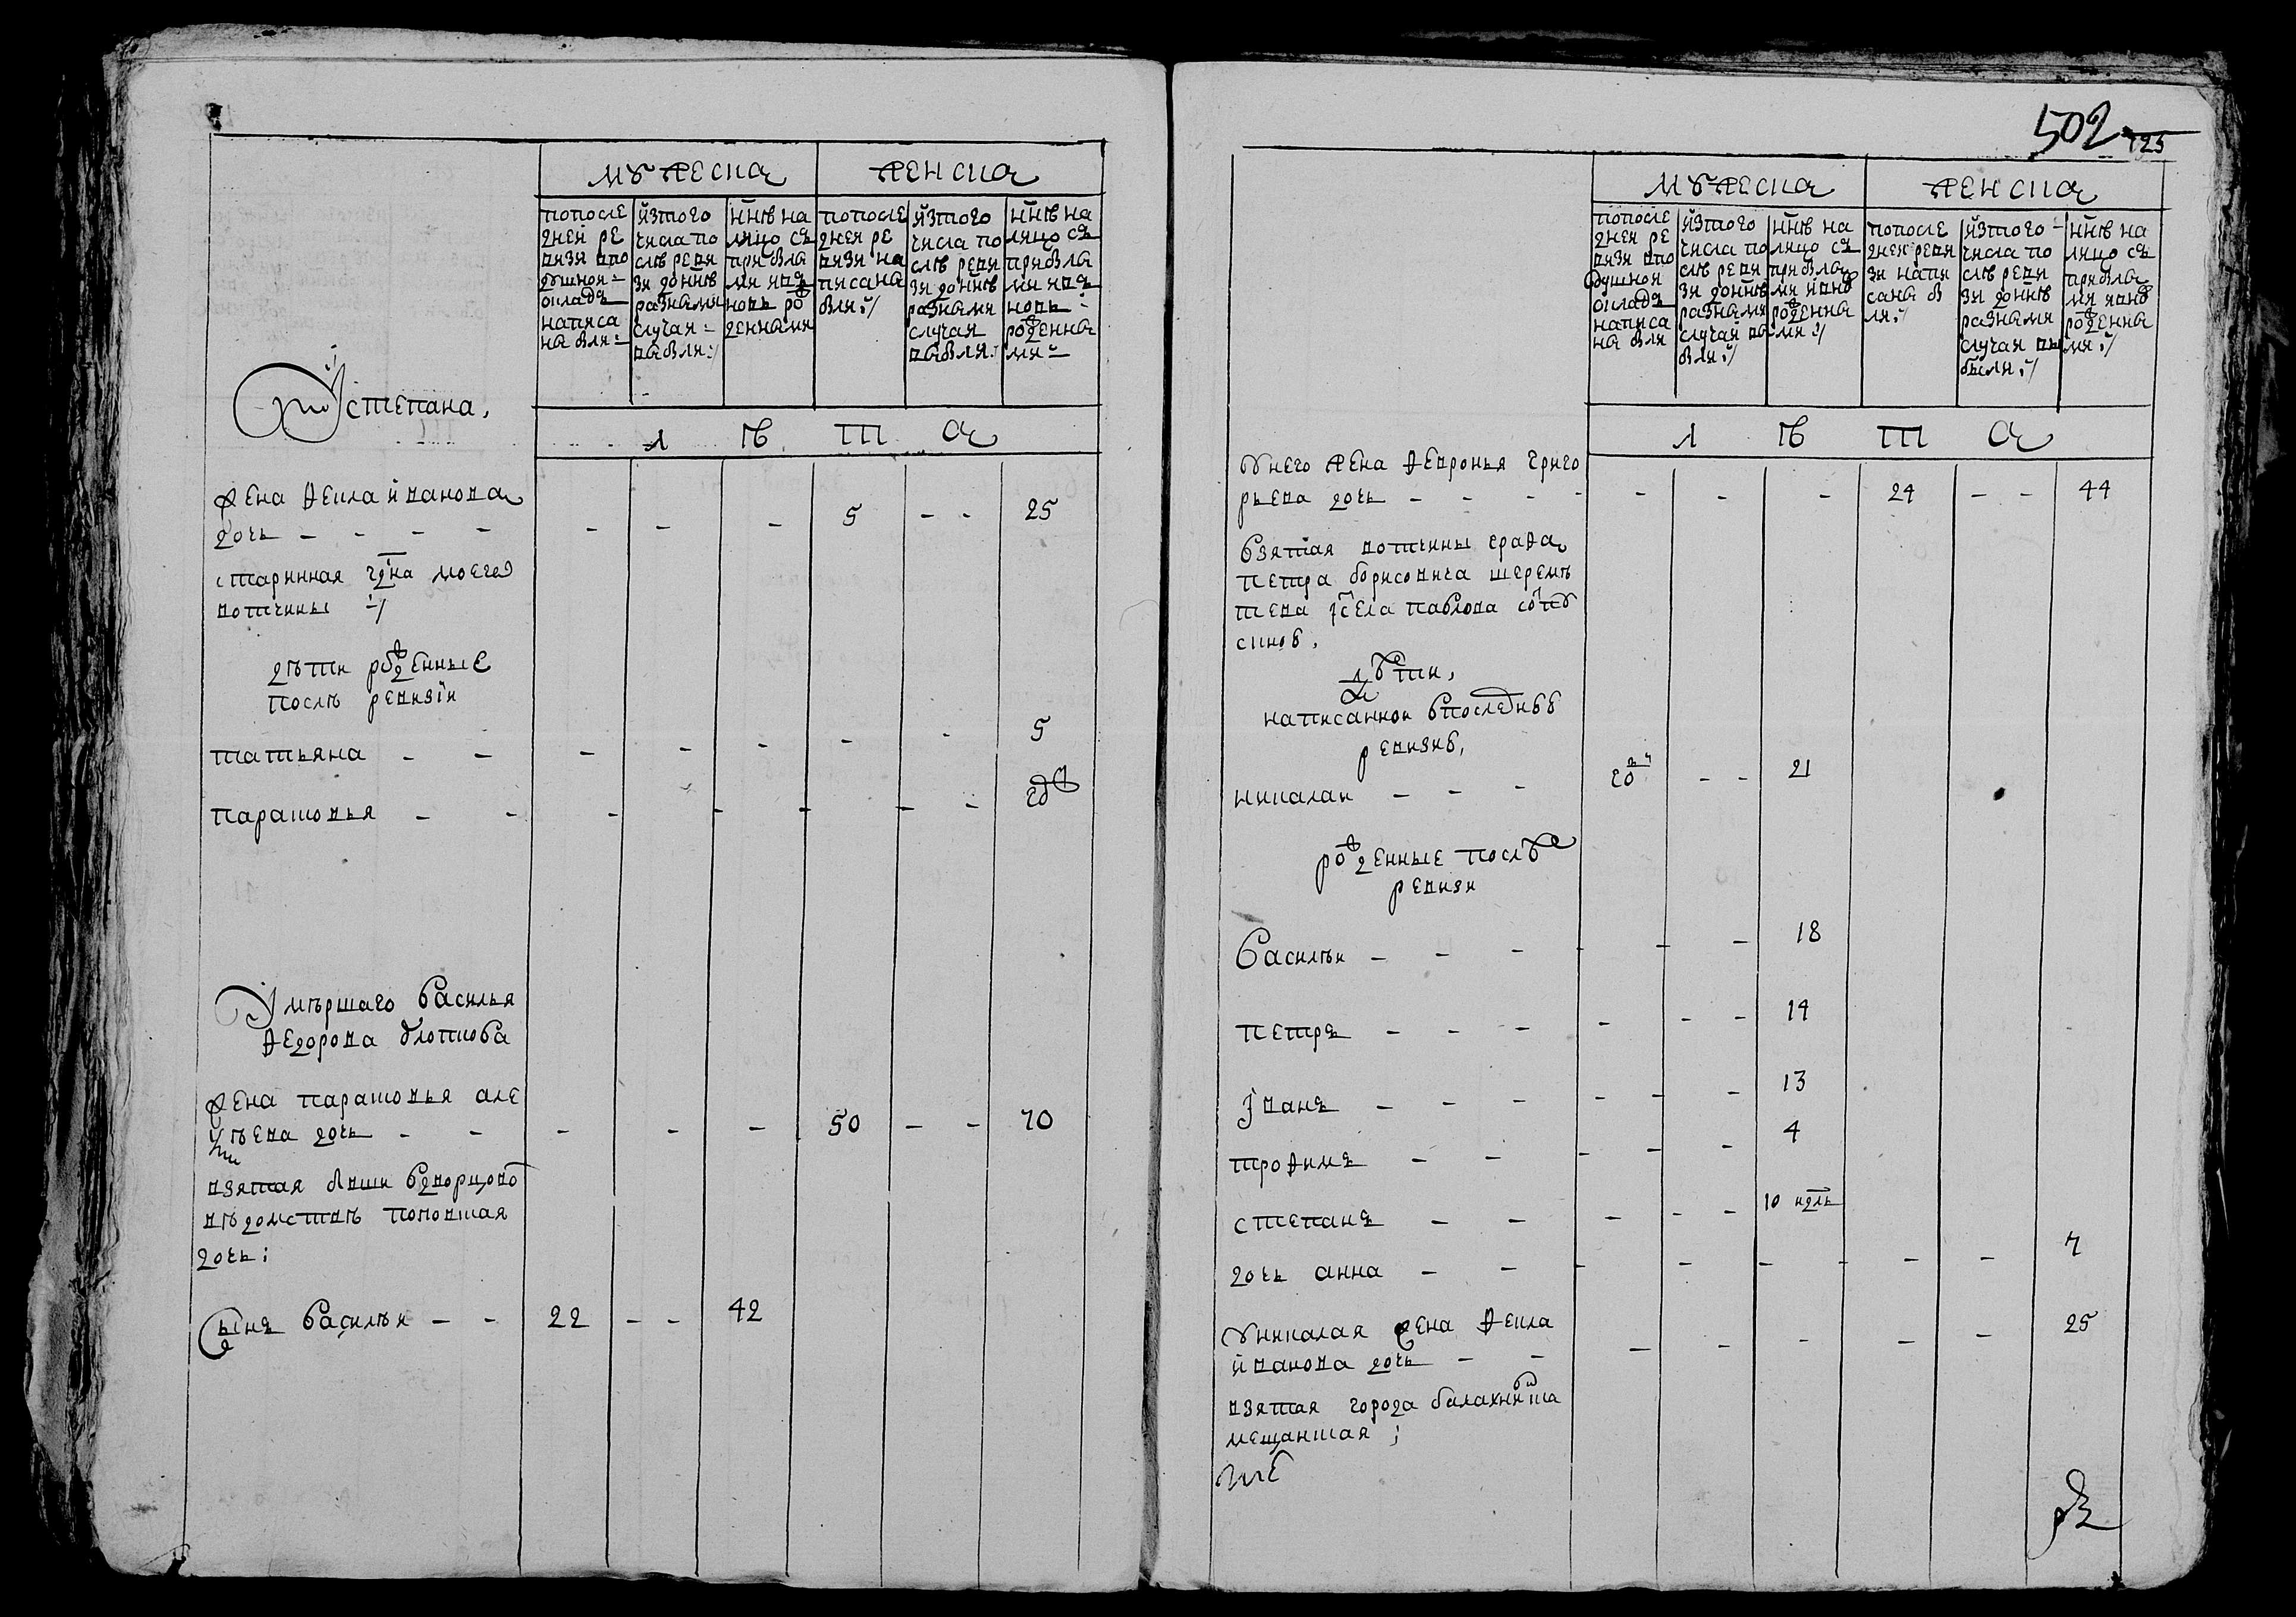 мужеска
женска
попосле
дней ре
визи впо
душной
окладъ
написа
на были
изтого
числа по
слѣ реви
зи донынѣ
разными
случаи
выбыли
ннѣ на
лицо съ
прибылы
ми ивъ
новь ро
жденными
попосле
дней ре
визи на
писана
были
изтого
числа по
слѣ реви
зи донынѣ
разными
случаи
выбыли
ннѣ на
лицо съ
прибылы
ми ивъ
новь
рожденны
ми
л ѣ т а
степана,
жена фекла иванова
дочь - - - - - - - 5 - - 25
старинная моей
вотчины
дѣти рожденные
послѣ ревизiи
татьяна - - - - - - - - 5
парасковья - - - - - - - - год
умѣршаго василья
федорова
жена парасковья але
ѣева дочь - - - - - 50 - - 70
взятая
вѣдомствѣ поповская
дочь;
сынъ василѣй - - 22 - - 42
502
125
мужеска
женска
попосле
дней ре
визи впо
душной
окладъ
написа
на были
изтого
числа по
слѣ реви
зи донынѣ
разными
случаи вы
были
ннѣ на
лицо съ
прибылы
ми ивно
рожденны
ми
попосле
дней реви
зи напи
сана бы
ли
изтого
числа по
слѣ реви
зи донынѣ
разными
случаи вы
были
ннѣ на
лицо съ
прибылы
ми ивно
рожденны
ми
л ѣ т а
унего жена февронья григо
рьева дочь - - - - - - - 24 - - 44
взятая вотчины графа
петра борисовича шеремѣ
тева села павлова
дѣти,
написанной впоследнѣй
ревизиѣ,
николай - - - год - - 21
рожденные послѣ
ревизи
василѣй - - - - - - 18
петръ - - - - - - 14
иванъ - - - - - - 13
трофимъ - - - - - 4
степанъ - - - - - 10 недль
дочь анна - - - - - - - - 7
униколая жена фекла
иванова дочь - - - - - - - 25
взятая города балахны
мещанская;